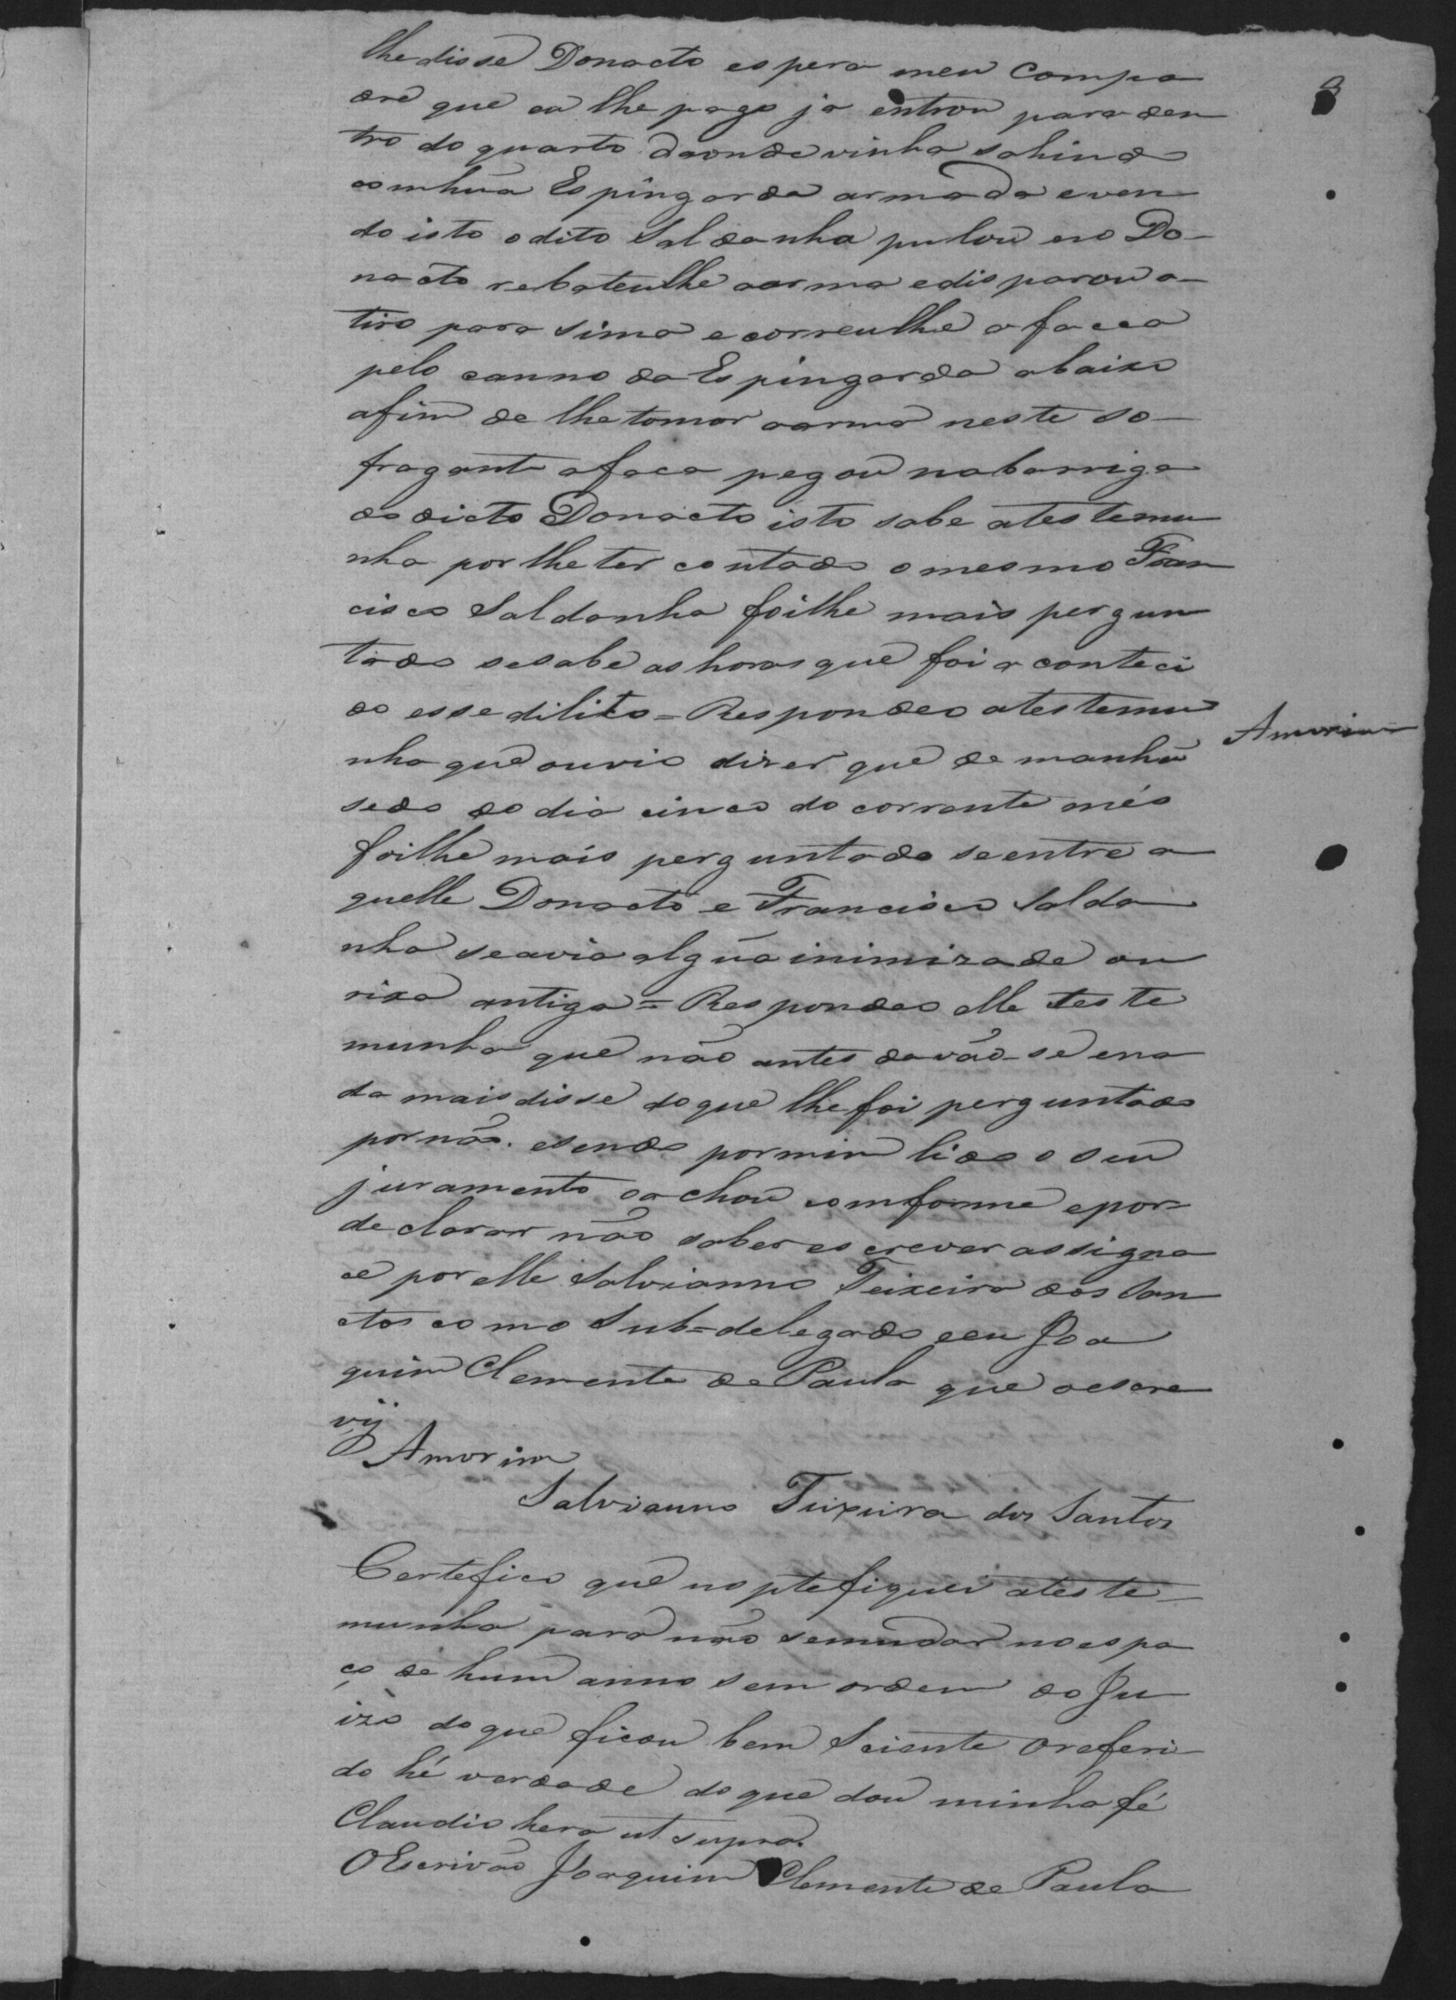 8
lhe disse Donacto espera meu Compa
dre que eu lhe pago ja entrou para den
tro do quarto daonde vinha sahindo
com hũa Espingarda armada e ven
do isto o dito Saldanha pulou no Do-
nacto rebateulhe a arma e disparou o
tiro para sima e correulhe a facca
pelo canno da Espingarda abaixo
afim de lhe tomar a arma neste so-
fragante a faca pegou na barriga
do dicto Donacto isto sabe a testemu
nha por lhe ter contado o mesmo Fran
cisco Saldanha foilhe mais pergun
tado se sabe as horas que foi aconteci
do esse dilito = Respondeo a testemu
nha que ouvio dizer que de manhã
sedo do dia cinco do corrente mês
foilhe mais perguntado se entre a
quelle Donacto e Francisco Salda
nha se avia algũa inimizade ou
rixa antiga = Respondeo elle teste
munha que não antes davão-se e na
da mais disse do que lhe foi perguntado
por não. e sendo por mim lido o seu
juramento o achou comforme e por
declarar não saber escrever assigna
se por elle Salvianno Teixeira dos San
ctos como Sub=delegado e eu Joa
quim Clemente de Paula que o escre
vij
Amorim
Amorim
Salvianno Teixeira dos Santos
Certefico que noptefiquei a teste-
munha para não se mudar no espa
ço de hum anno sem ordem do Ju
izo do que ficou bem Sciente O referi
do hé verdade do que dou minha fé
Claudio hera ut supra.
O Escrivão Joaquim Clemente de Paula